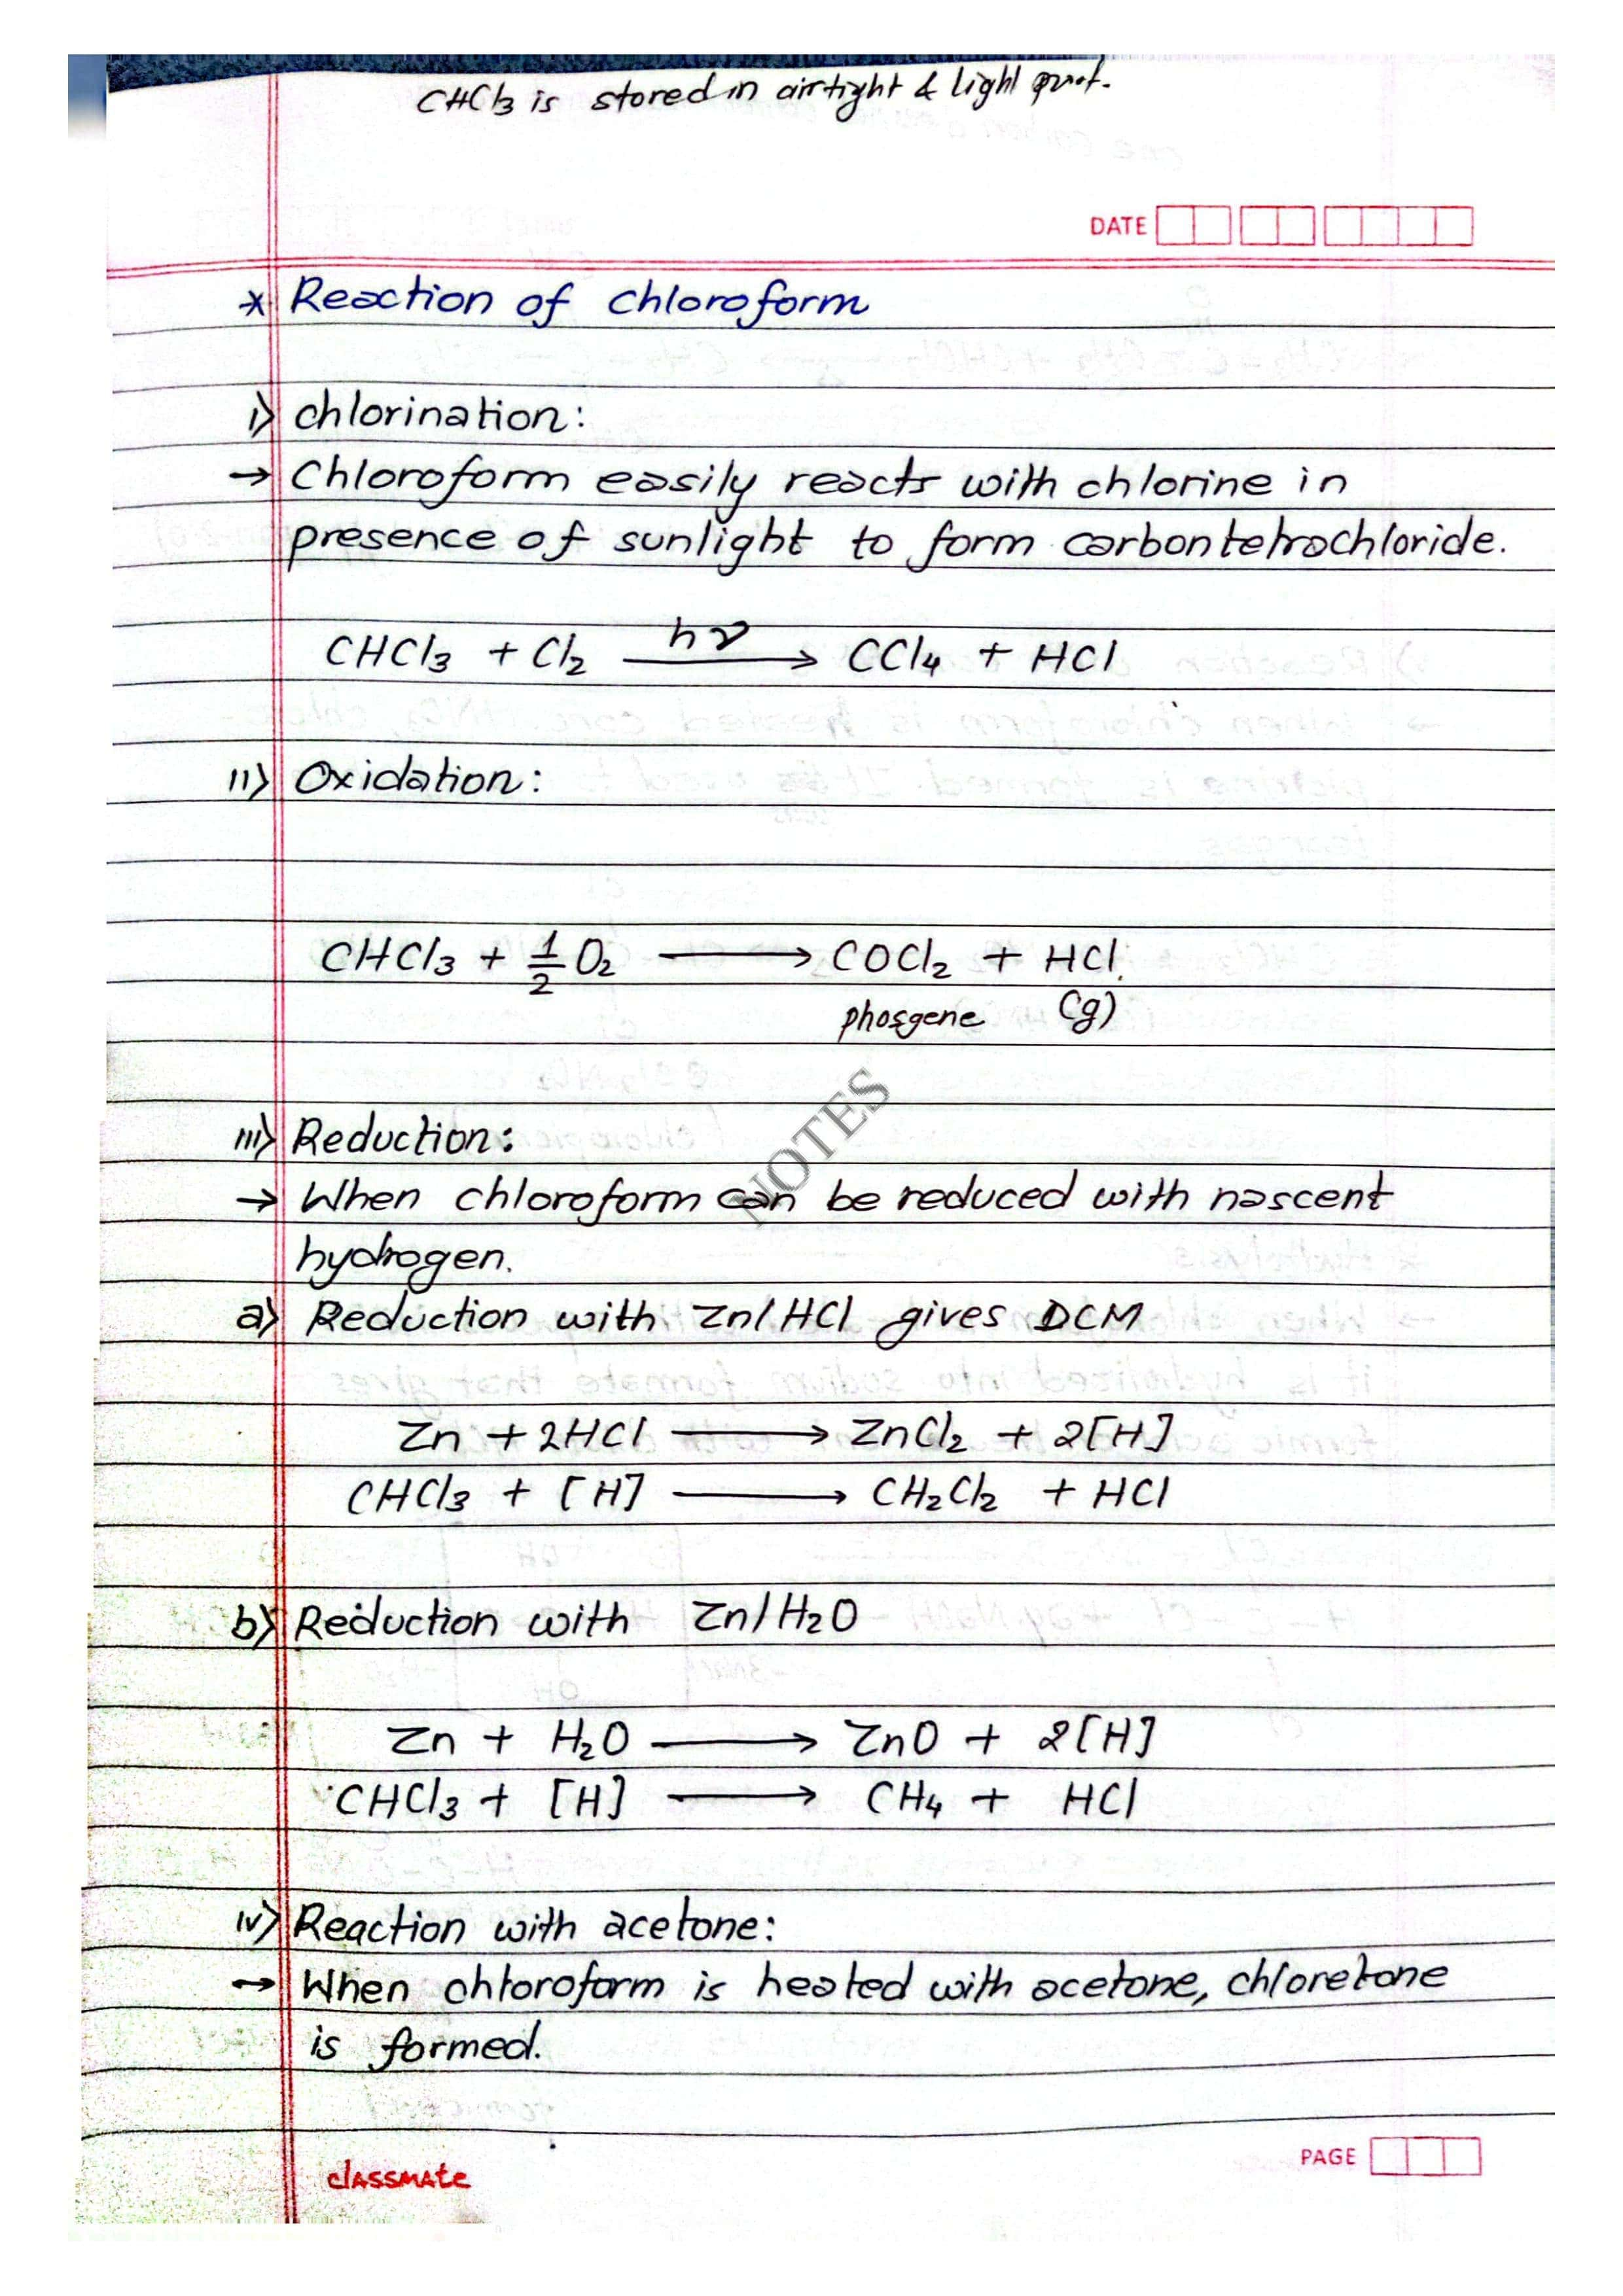 CHCl3 is stored in airtight & light proof.
DATE
* Reaction of chloroform
i) chlorination:
→ Chloroform easily reacts with chlorine in
presence of sunlight to form carbontetrachloride.
CHCl3 + Cl2 —hν→ CCl4 + HCl
ii) Oxidation:
CHCl3 + 1/2 O2 → COCl2 + HCl
phosgene (g)
iii) Reduction:
→ When chloroform can be reduced with nascent
hydrogen.
a) Reduction with Zn/HCl gives DCM
Zn + 2HCl → ZnCl2 + 2[H]
CHCl3 + [H] → CH2Cl2 + HCl
b) Reduction with Zn/H2O
Zn + H2O → ZnO + 2[H]
CHCl3 + [H] → CH4 + HCl
iv) Reaction with acetone:
→ When chloroform is heated with acetone, chloretone
is formed.
NOTES
classmate
PAGE